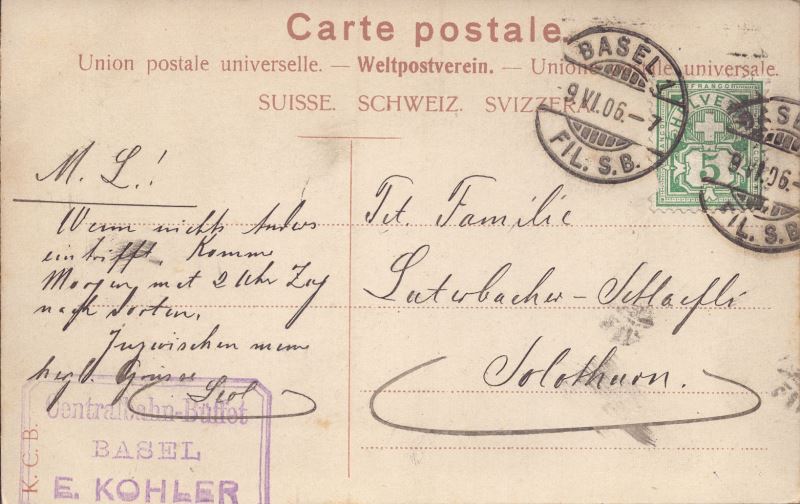 Carte postale.
Union postale universelle. — Weltpostverein. — Unione postale universale.
SUISSE. SCHWEIZ. SVIZZERA.
BASEL 1
9.VI.06.-7
FIL. S. B.
FRANCO
HELVETIA
5
BASEL
9.VI.06.-
FIL. S. B.
M. L.!
Wenn nichts Anders
eintrifft, Komme
Morgen mit 2 Uhr Zug
nach dorten.
Inzwischen meine
herzl. Grüsse
Tit. Familie
Luterbacher-Schlaefli
Solothurn.
Centralbahn-Büffet
BASEL
E. KOHLER
K. C. B.